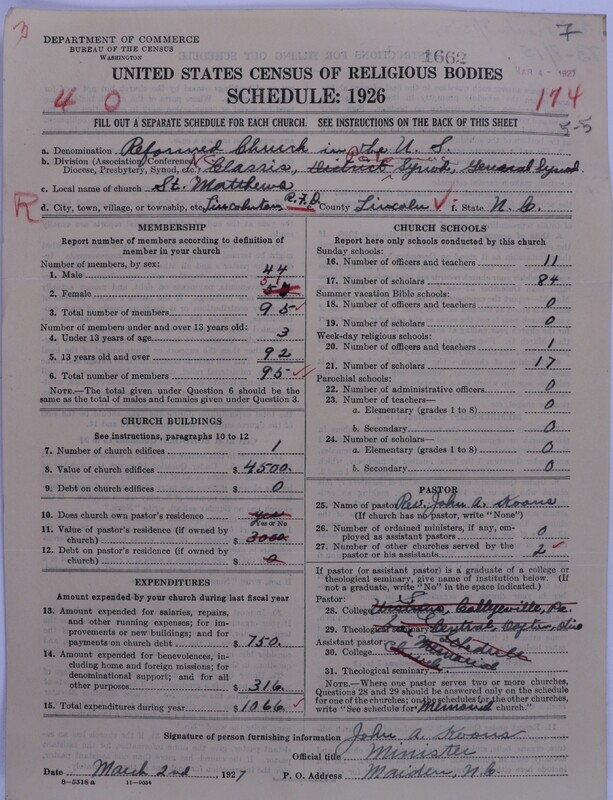 DEPARTMENT OF COMMERCE
BUREAU OF THE CENSUS
WASHINGTON
7
1662
1927
UNITED STATES CENSUS OF RELIGIOUS BODIES
SCHEDULE: 1926
4 0
174
FILL OUT A SEPARATE SCHEDULE FOR EACH CHURCH. SEE INSTRUCTIONS ON THE BACK OF THIS SHEET
5-5
a. Denomination Reformed Church in the U. S.
b. Division (Association, Conference, Diocese, Presbytery, Synod, etc.) N.C. Classis, District Synod, General Synod
c. Local name of church St. Matthews
R
d. City, town, village, or township, etc. Lincolnton R.F.D. e. County Lincoln f. State N. C.
MEMBERSHIP
Report number of members according to definition of
member in your church
Number of members, by sex:
1. Male 44
2. Female 51
3. Total number of members 95
Number of members under and over 13 years old:
4. Under 13 years of age 3
5. 13 years old and over 92
6. Total number of members 95
NOTE.—The total given under Question 6 should be
the same as the total of males and females given under Question 3.
CHURCH BUILDINGS
See instructions, paragraphs 10 to 12
7. Number of church edifices 1
8. Value of church edifices $ 4500.
9. Debt on church edifices $ 0
10. Does church own pastor's residence yes
Yes or No
11. Value of pastor's residence (if owned by
church) $ 3000.
12. Debt on pastor's residence (if owned by
church) $ 0
EXPENDITURES
Amount expended by your church during last fiscal year
13. Amount expended for salaries, repairs,
and other running expenses; for im-
provements or new buildings; and for
payments on church debt $ 750.
14. Amount expended for benevolences,
including home and foreign missions; for
denominational support; and for all
other purposes $ 316.
15. Total expenditures during year $ 1066.
CHURCH SCHOOLS
Report here only schools conducted by this church
Sunday schools:
16. Number of officers and teachers 11
17. Number of scholars 84
Summer vacation Bible schools:
18. Number of officers and teachers 0
19. Number of scholars 0
Week-day religious schools:
20. Number of officers and teachers 1
21. Number of scholars 17
Parochial schools:
22. Number of administrative officers 0
23. Number of teachers—
a. Elementary (grades 1 to 8) 0
b. Secondary 0
24. Number of scholars—
a. Elementary (grades 1 to 8) 0
b. Secondary 0
PASTOR
25. Name of pastor Rev. John A. Koons
(If church has no pastor, write "None")
26. Number of ordained ministers, if any, em-
ployed as assistant pastors 0
27. Number of other churches served by the
pastor or his assistants 2
If pastor (or assistant pastor) is a graduate of a college or
theological seminary, give name of institution below. (If
not a graduate, write "No" in the space indicated.)
Pastor:
28. College Ursinus, Collegeville, Pa.
29. Theological seminary Central, Dayton, Ohio
Assistant pastor: Schedule
30. College Memorial
31. Theological seminary
NOTE.—Where one pastor serves two or more churches,
Questions 28 and 29 should be answered only on the schedule
for one of the churches; on the schedules for the other churches,
write "See schedule for Memorial church."
Signature of person furnishing information John A. Koons
Official title Minister
Date March 2nd 1927 P. O. Address Maiden, N.C.
8—5518 a 11—9084